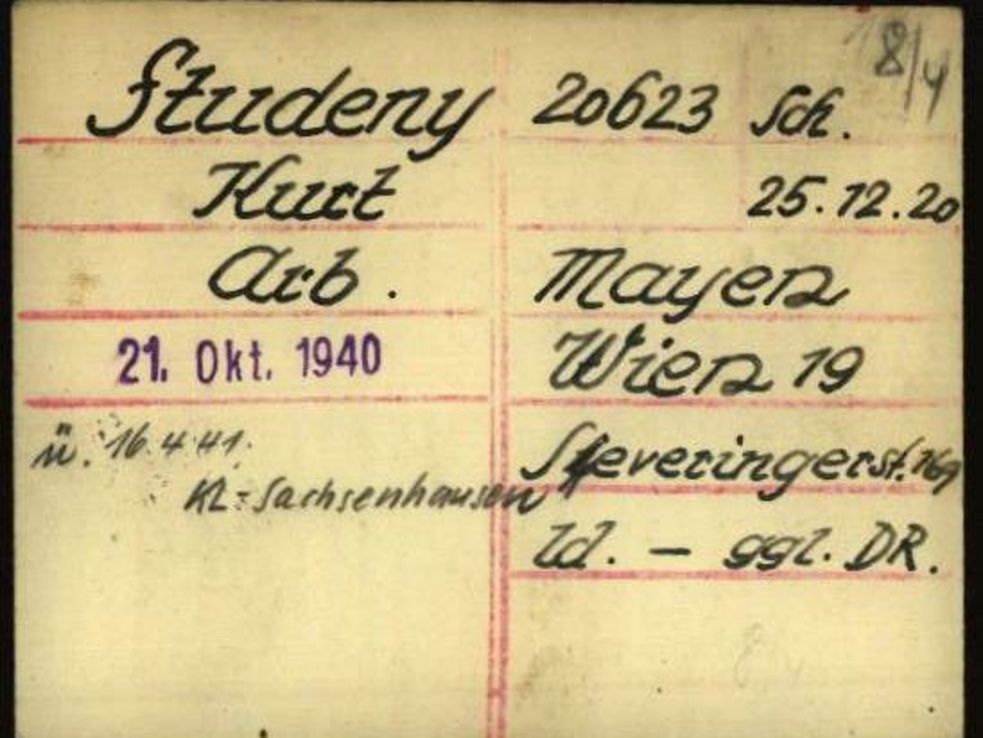 18/4
Studeny 20623 Sch.
Kurt 25.12.20
Arb. Mayen
21. Okt. 1940 Wien 19
ü. 16.4.41. Sieveringerst. 169
KL-Sachsenhausen
ld. - ggl. DR.